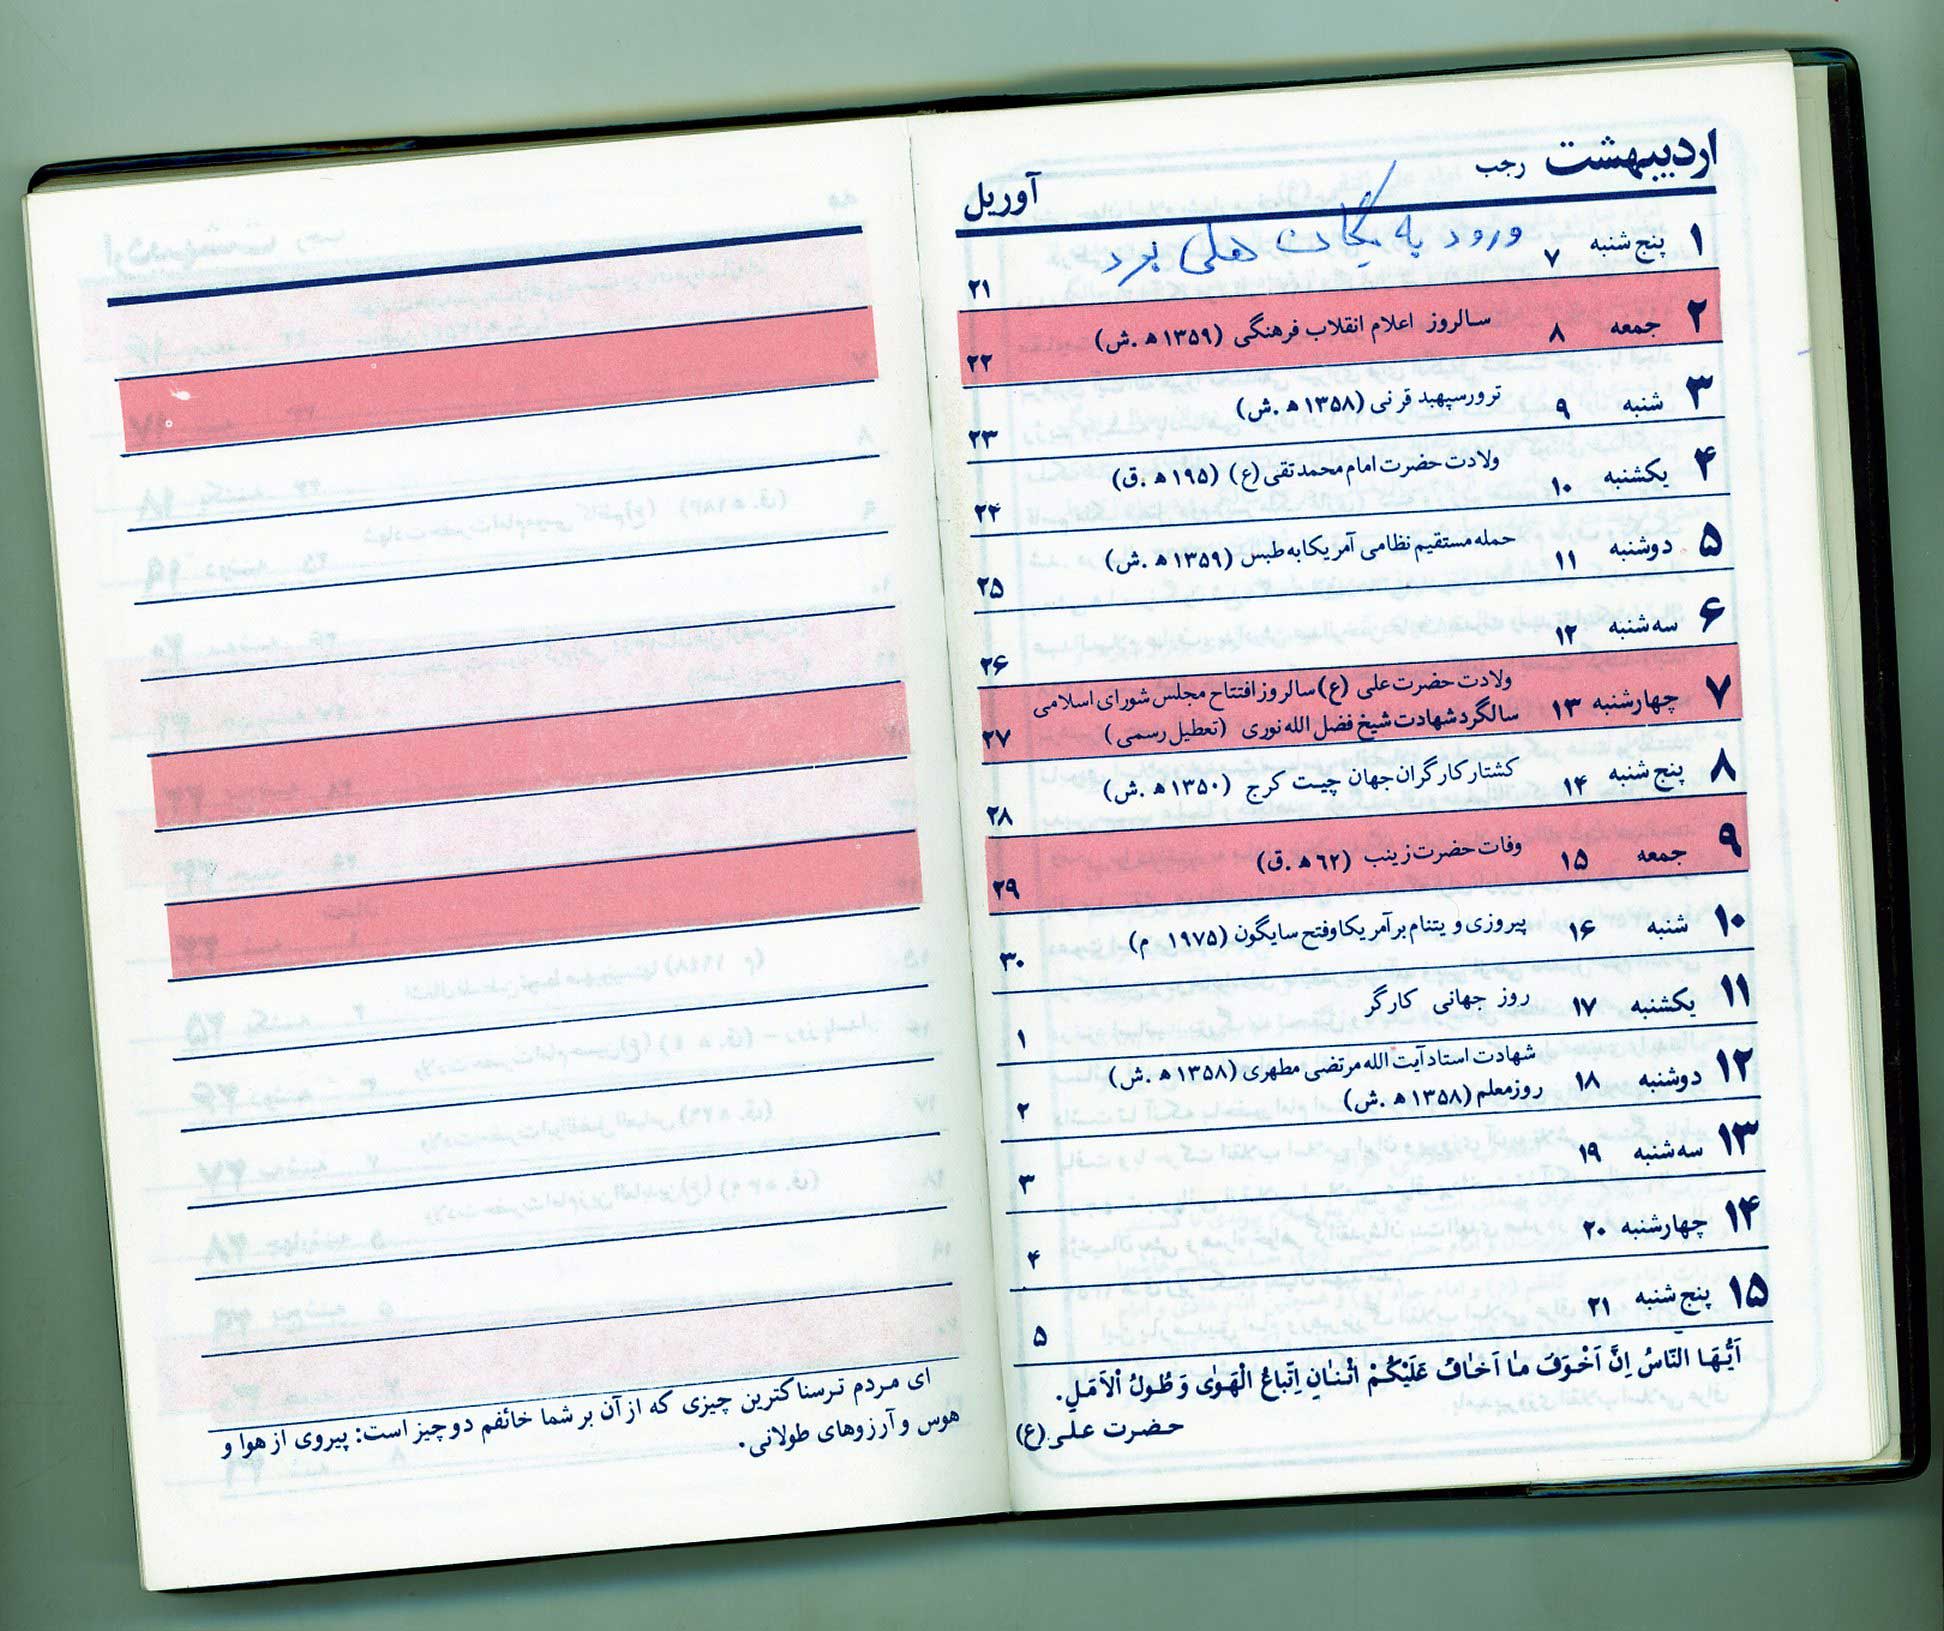 اردیبهشت رجب آوریل
۱ پنج شنبه ۷ ورود به یگان هلی برد ۲۱
۲ جمعه ۸ سالروز اعلام انقلاب فرهنگی (۱۳۵۹ ه.ش) ۲۲
۳ شنبه ۹ ترور سپهبد قرنی (۱۳۵۸ ه.ش) ۲۳
۴ یکشنبه ۱۰ ولادت حضرت امام محمد تقی (ع) (۱۹۵ ه.ق) ۲۴
۵ دوشنبه ۱۱ حمله مستقیم نظامی آمریکا به طبس (۱۳۵۹ ه.ش) ۲۵
۶ سه شنبه ۱۲ ۲۶
۷ چهارشنبه ۱۳ ولادت حضرت علی (ع) سالروز افتتاح مجلس شورای اسلامی
سالگرد شهادت شیخ فضل الله نوری (تعطیل رسمی) ۲۷
۸ پنج شنبه ۱۴ کشتار کارگران جهان چیت کرج (۱۳۵۰ ه.ش) ۲۸
۹ جمعه ۱۵ وفات حضرت زینب (۶۲ ه.ق) ۲۹
۱۰ شنبه ۱۶ پیروزی ویتنام بر آمریکا و فتح سایگون (۱۹۷۵ م) ۳۰
۱۱ یکشنبه ۱۷ روز جهانی کارگر ۱
۱۲ دوشنبه ۱۸ شهادت استاد آیت الله مرتضی مطهری (۱۳۵۸ ه.ش)
روز معلم (۱۳۵۸ ه.ش) ۲
۱۳ سه شنبه ۱۹ ۳
۱۴ چهارشنبه ۲۰ ۴
۱۵ پنج شنبه ۲۱ ۵
اَیُّهَا النّاسُ اِنَّ اَخْوَفَ مٰا اَخٰافُ عَلَیْکُمْ اثْنٰانِ اِتِّباعُ الْهَوٰی وَ طُولُ الْاَمَلِ.
حضرت علی (ع)
ای مردم ترسناکترین چیزی که از آن بر شما خائفم دو چیز است: پیروی از هوا و
هوس و آرزوهای طولانی.